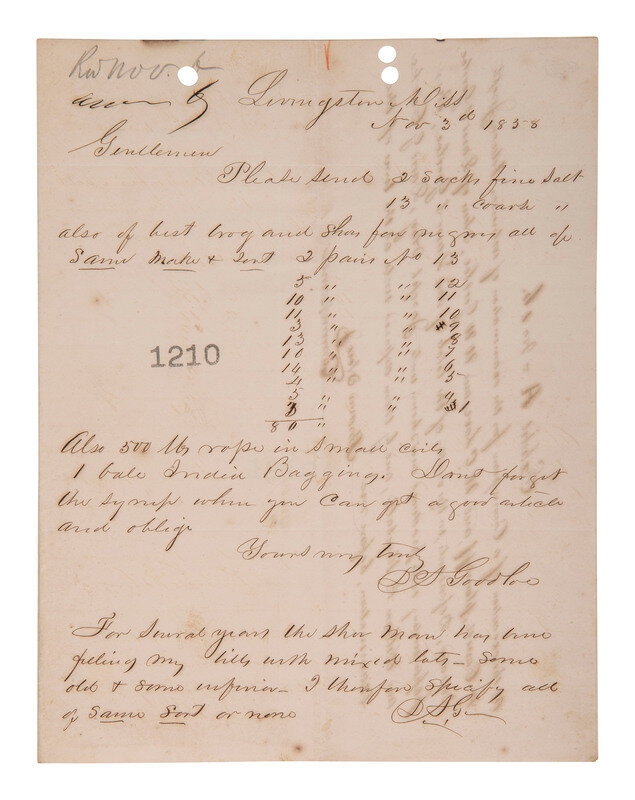 Recd Nov. 
Livingston Miss
Nov 3d 1858
Gentlemen
Please send 2 sacks fine salt
13 " coarse "
also of best brogand shoes for negros all of
Same Make & Sort 2 pairs No 13
5 " " 12
10 " " 11
11 " " 10
3 " " 9
13 " " 8
10 " " 7
14 " " 6
4 " " 5
5 " " 4
3 " " 1
80 "
1210
Also 500 lbs rope in small coils
1 bale India Bagging. Dont forget
the syrup when you can get a good article
and oblige
Yours very truly
D S Goodloe
For several years the shoe man has been
filling my bills with mixed lots - some
old & some inferior - I therfore specify all
of same sort or none
D.S.G.